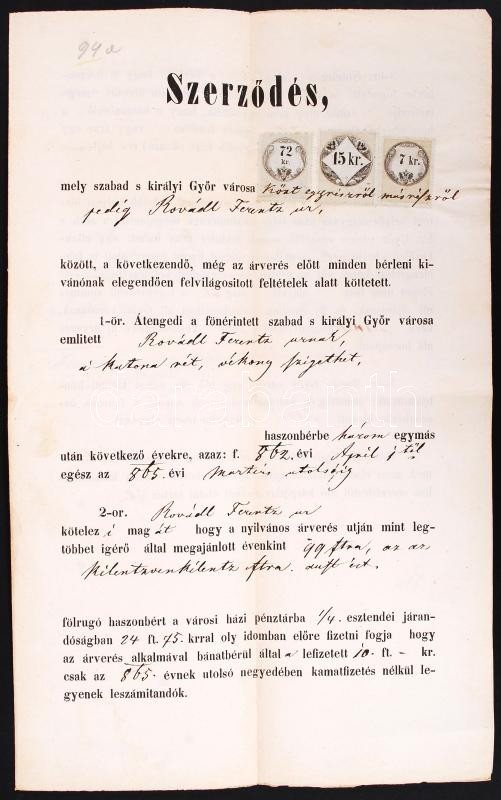 99a
Szerződés,
72 kr.
15 kr.
7 kr.
mely szabad s királyi Győr városa közt egyrészről másrészről
pedig Rovádl Ferentz ur,
között, a következendő, még az árverés előtt minden bérleni ki-
vánónak elegendően felvilágositott feltételek alatt köttetett.
1-ör. Átengedi a fönérintett szabad s királyi Győr városa
emlitett Rovádl Ferentz urnak,
a katona rét, vékony szigethet,
haszonbérbe három egymás
után következő évekre, azaz: f. 862. évi April 1től
egész az 865. évi martius utolsóig
2-or. Rovádl Ferentz ur
kötelezi magát hogy a nyilvános árverés utján mint leg-
többet igérő által megajánlott évenkint 99 ftra, az az
kilentzvenkilentz ftra. austr. ért.
fölrugó haszonbért a városi házi pénztárba 1/4. esztendei járan-
dóságban 24 ft. 75. krral oly idomban előre fizetni fogja hogy
az árverés alkalmával bánatbérül általa lefizetett 10. ft. – kr.
csak az 865. évnek utolsó negyedében kamatfizetés nélkül le-
gyenek leszámitandók.